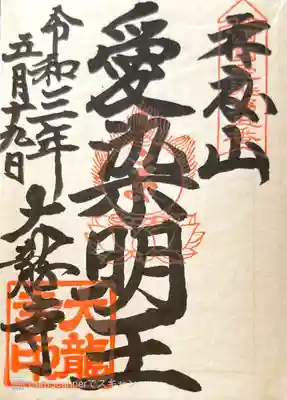 再度山
愛染明王
令和三年
五月十九日
大龍寺
CamScannerでスキャン